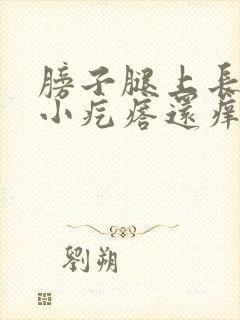 膀子腿上長
小疙瘩還癢
劉朔